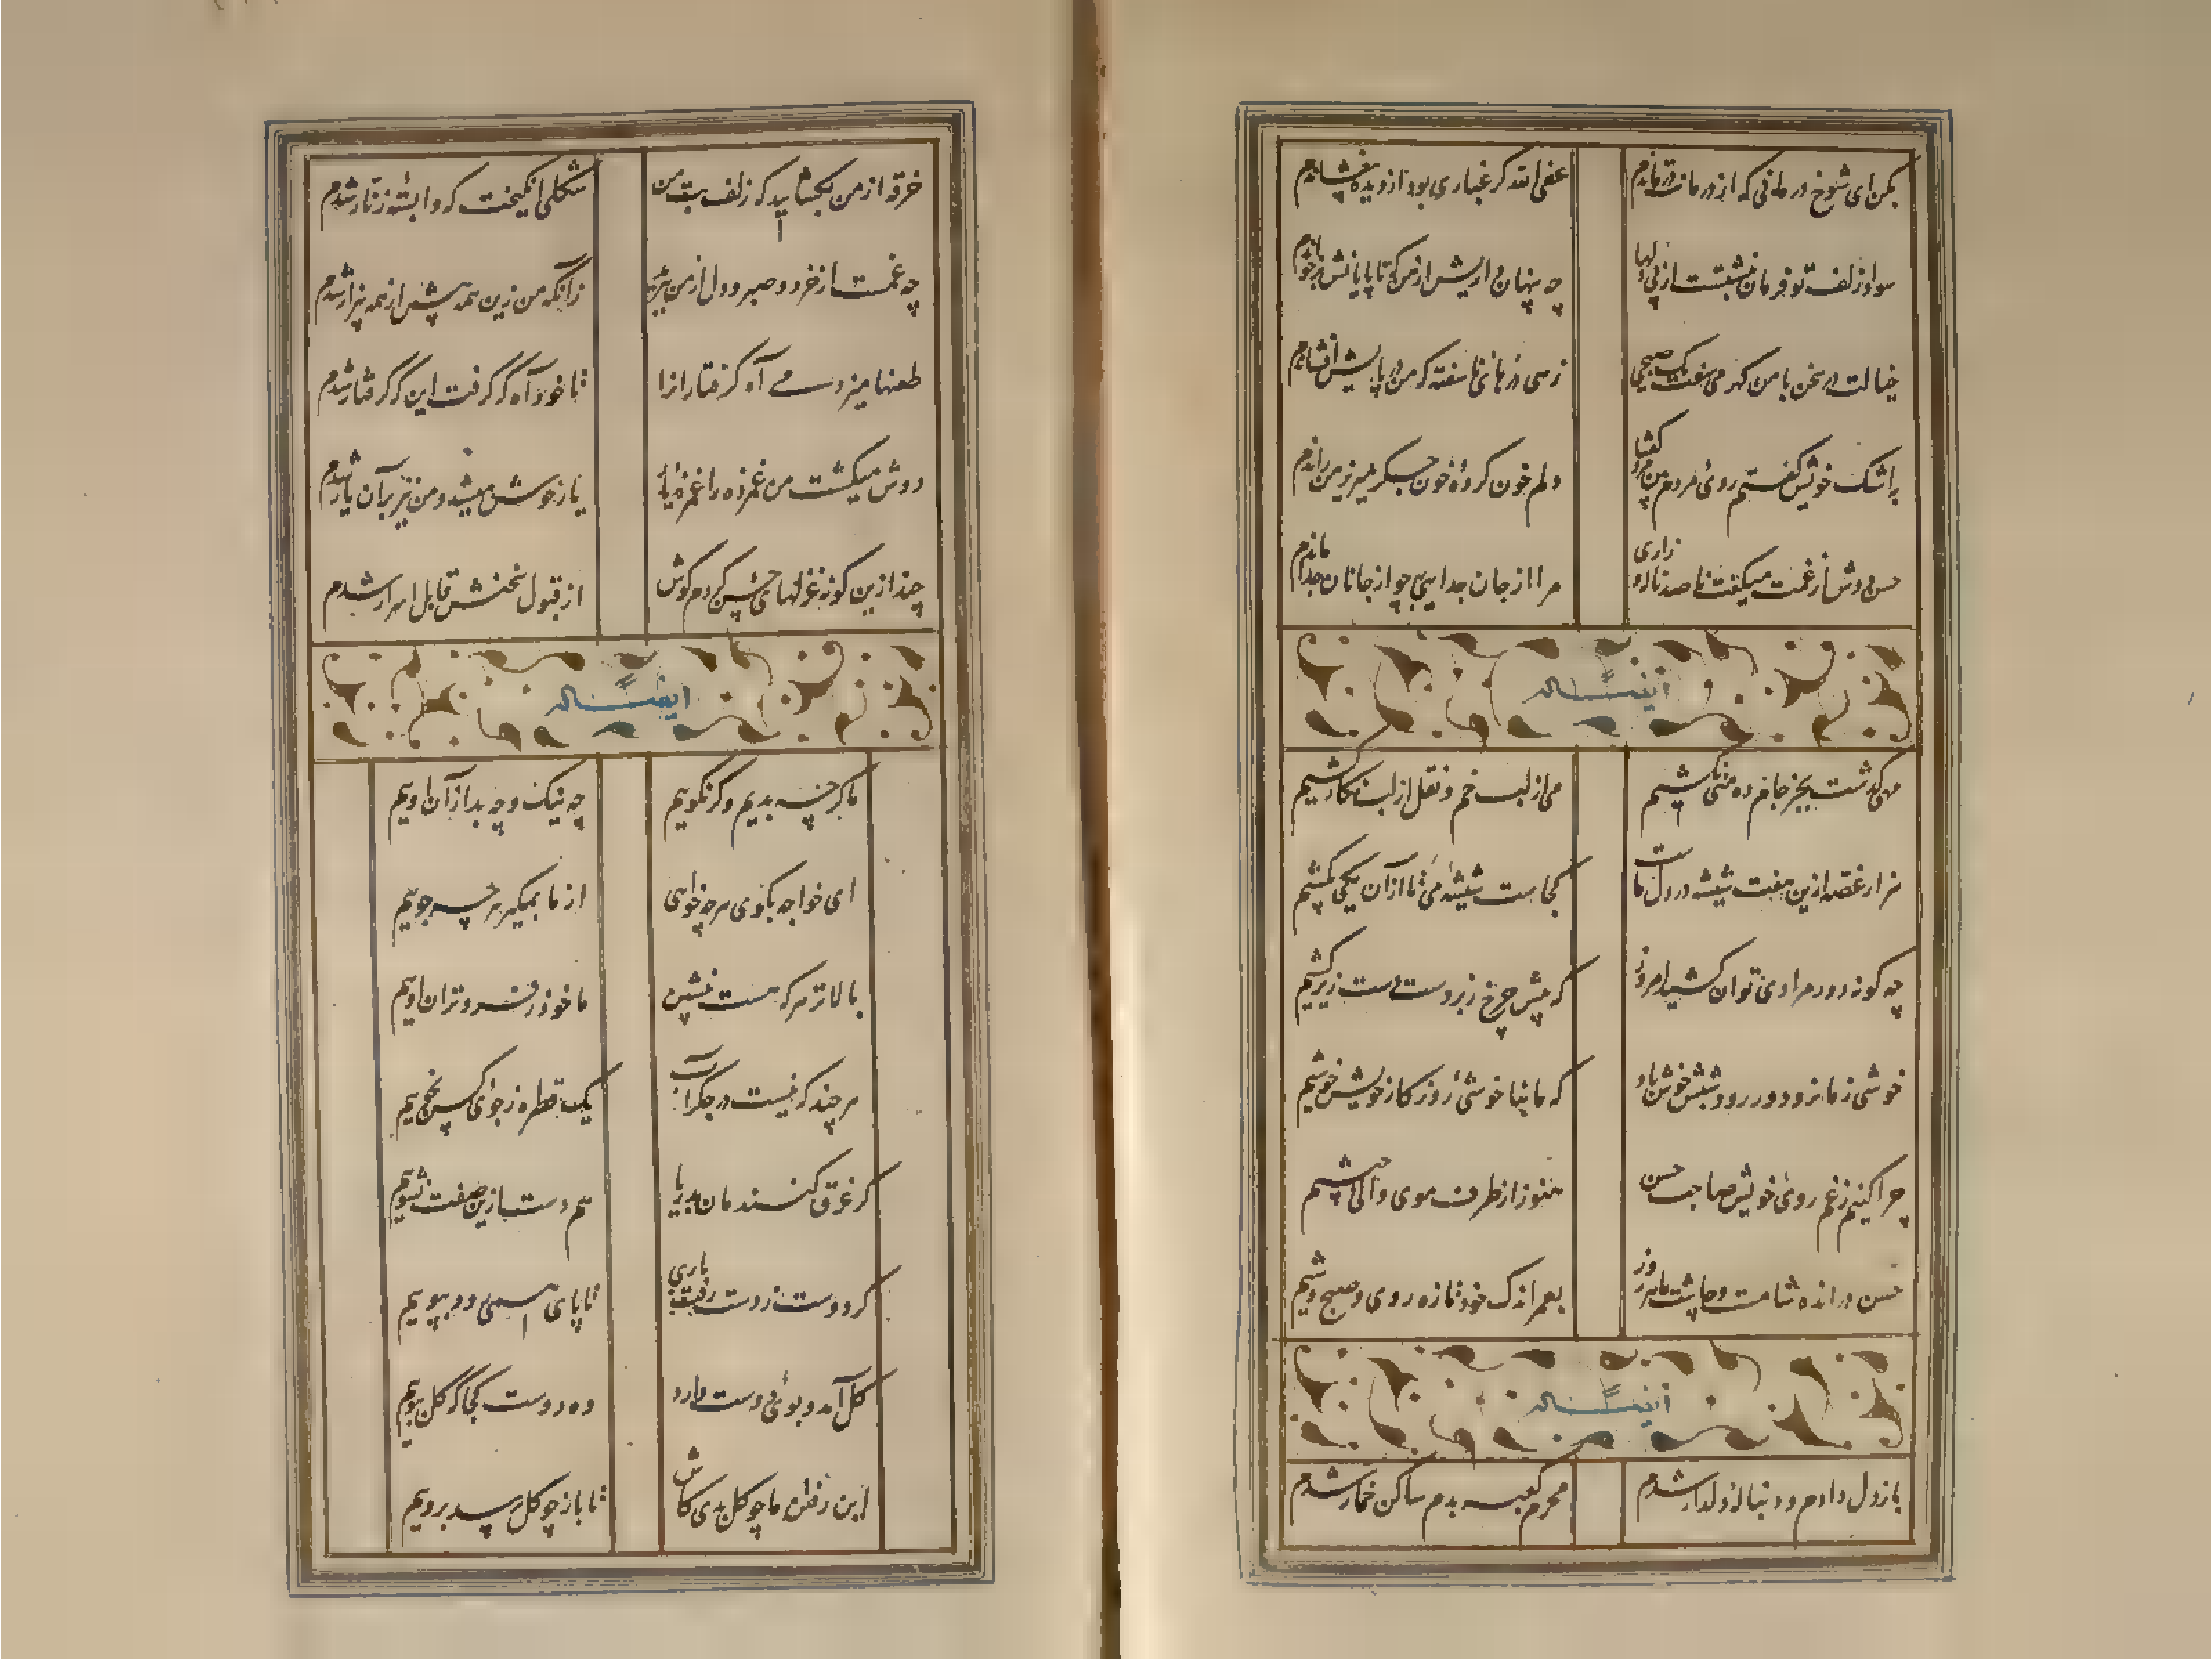 بکن ای شوخ درمانی که از درمانت درماندم عفی الله گر غباری بود از دیده بفشاندم
سواد زلف تو فرمان نبشتست از پی دلها چه پنهان داریش از من که تا پایانش برخواندم
خیالت در سخن با من گهر می سفت یک صبحی زهی درهای ناسفته که من در پایش افشاندم
به اشک خویش گفتم روی مردم من مرو گفتا دلم خون کرده خون جگر میریز من راندم
حسن دوش از غمت میگفت با صد ناله و زاری مرا از جان جدا بینی چو از جانان جدا ماندم
ایضاً له
مهی گذشت بجز جام ده منی نکشیم می از لب خم و نقل از لب نگار کشیم
هزار غصه ازین هفت شیشه در دل ماست کجاست شیشهٔ می تا از آن یکی بکشیم
چه گونه دور مرادی توان کشید امروز که پیش چرخ زبردست دست زیر کشیم
خوشی زمانه و دور رود شبش خوش باد که ما بنا خوشی روزگار خویش خوشیم
چرا کنیم ز غم روی خویش صاحب حسن هنوز از طرف موی والی حبشیم
حسن درانده شامت و چاشت ما هر روز بعمر اندک خود تازه روی و صبح وشیم
ایضاً له
باز دل دادم و دنبال دلدار شدم محرم کعبه بدم ساکن خمار شدم
خرقه از من بکشایید که زلف بت من شکلی انگیخت که وابستهٔ زنار شدم
چه غمست از خرد و صبر و دل از من برمید زانکه من زین همه پیش از همه بیزار شدم
طعنها میزدمی آه گرفتاران را تا خود آه که گرفت این که گرفتار شدم
دوش میکشت من غمزده را غمزهٔ یار یار خوش میشد و من نیز بر آن یار شدم
چند ازین گونه غزلهای حسن کردم گوش از قبول سخنش قابل اسرار شدم
ایضاً له
ما گر چه بدیم و گر نکوییم چه نیک و چه بد از آن اوییم
ای خواجه بگوی هر چه خواهی از ما بمگیر هر چه جوییم
بالاتر هر که هست بنشین ما خود ز فروتران اوییم
هر چند که نیست در جگر آب یک قطره ز جوی کس نجوییم
گر غرق کنند مان بدریا هم دست ازین صفت نشوییم
گر دوست ز دست رفت باری تا پای همی دود بپوییم
گل آمد و بوی دوست دارد وه دوست کجا که گل ببوییم
این رفتن ما چو گل بدی کاش تا باز چو گل رسد بروییم